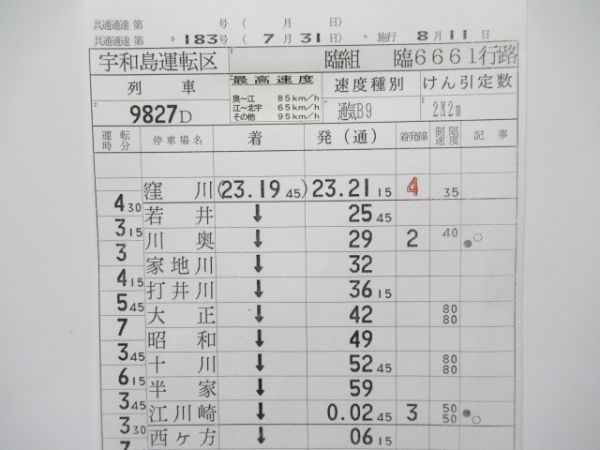 共通通達 第 号 ( 月 日)
共通通達 第 183号 ( 7月 31日) 施行 8月 11日
宇和島運転区 臨組 臨6661行路
列車 最高速度 速度種別 けん引定数
9827D 奥~江 85km/h 通気B9 2M2m
江~北宇 65km/h
その他 95km/h
運転時分 停車場名 着 発(通) 着発線 制限速度 記事
窪川 (23.19 45) 23.21 15 4 35
4 30
若井 ↓ 25 45
3 15
川奥 ↓ 29 2 40
3
家地川 ↓ 32
4 15
打井川 ↓ 36 15
5 45
大正 ↓ 42 80 80
7
昭和 ↓ 49
3 45
十川 ↓ 52 45 80 80
6 15
半家 ↓ 59
3 45
江川崎 ↓ 0.02 45 3 50 50
3 30
西ヶ方 ↓ 06 15